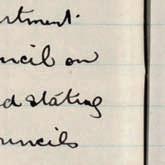 artment.
uncil on
d stating
ouncils